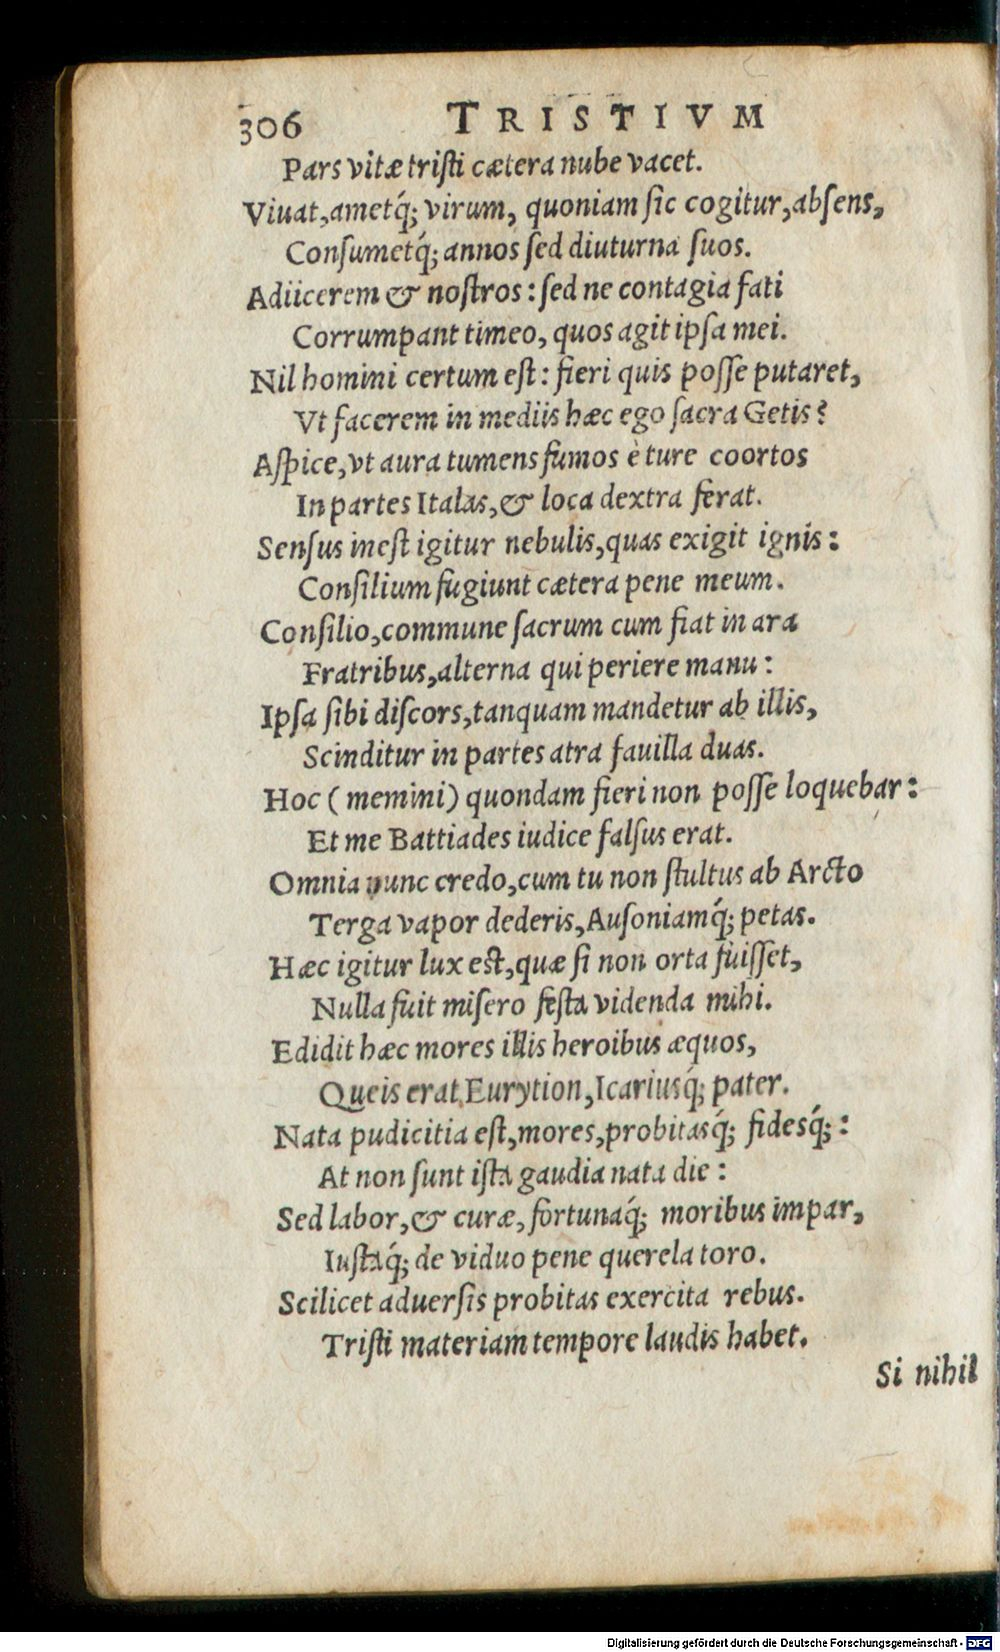 306 TRISTIVM
Pars vitæ tristi cætera nube vacet.
Viuat,ametq́; virum, quoniam sic cogitur,absens,
Consumetq́; annos sed diuturna suos.
Adiicerem & nostros: sed ne contagia fati
Corrumpant timeo, quos agit ipsa mei.
Nil homini certum est: fieri quis posse putaret,
Vt facerem in mediis hæc ego sacra Getis?
Aspice,vt aura tumens fumos è ture coortos
In partes Italas,& loca dextra ferat.
Sensus inest igitur nebulis,quas exigit ignis:
Consilium fugiunt cætera pene meum.
Consilio,commune sacrum cum fiat in ara
Fratribus,alterna qui periere manu:
Ipsa sibi discors,tanquam mandetur ab illis,
Scinditur in partes atra fauilla duas.
Hoc (memini) quondam fieri non posse loquebar:
Et me Battiades iudice falsus erat.
Omnia nunc credo,cum tu non stultus ab Arcto
Terga vapor dederis,Ausoniamq́; petas.
Hæc igitur lux est,quæ si non orta fuisset,
Nulla fuit misero festa videnda mihi.
Edidit hæc mores illis heroibus æquos,
Queis erat Eurytion,Icariusq́; pater.
Nata pudicitia est,mores,probitasq́; fidesq́;:
At non sunt ista gaudia nata die:
Sed labor,& curæ,fortunaq́; moribus impar,
Iustaq́; de viduo pene querela toro.
Scilicet aduersis probitas exercita rebus.
Tristi materiam tempore laudis habet.
Si nihil
Digitalisierung gefördert durch die Deutsche Forschungsgemeinschaft - DFG